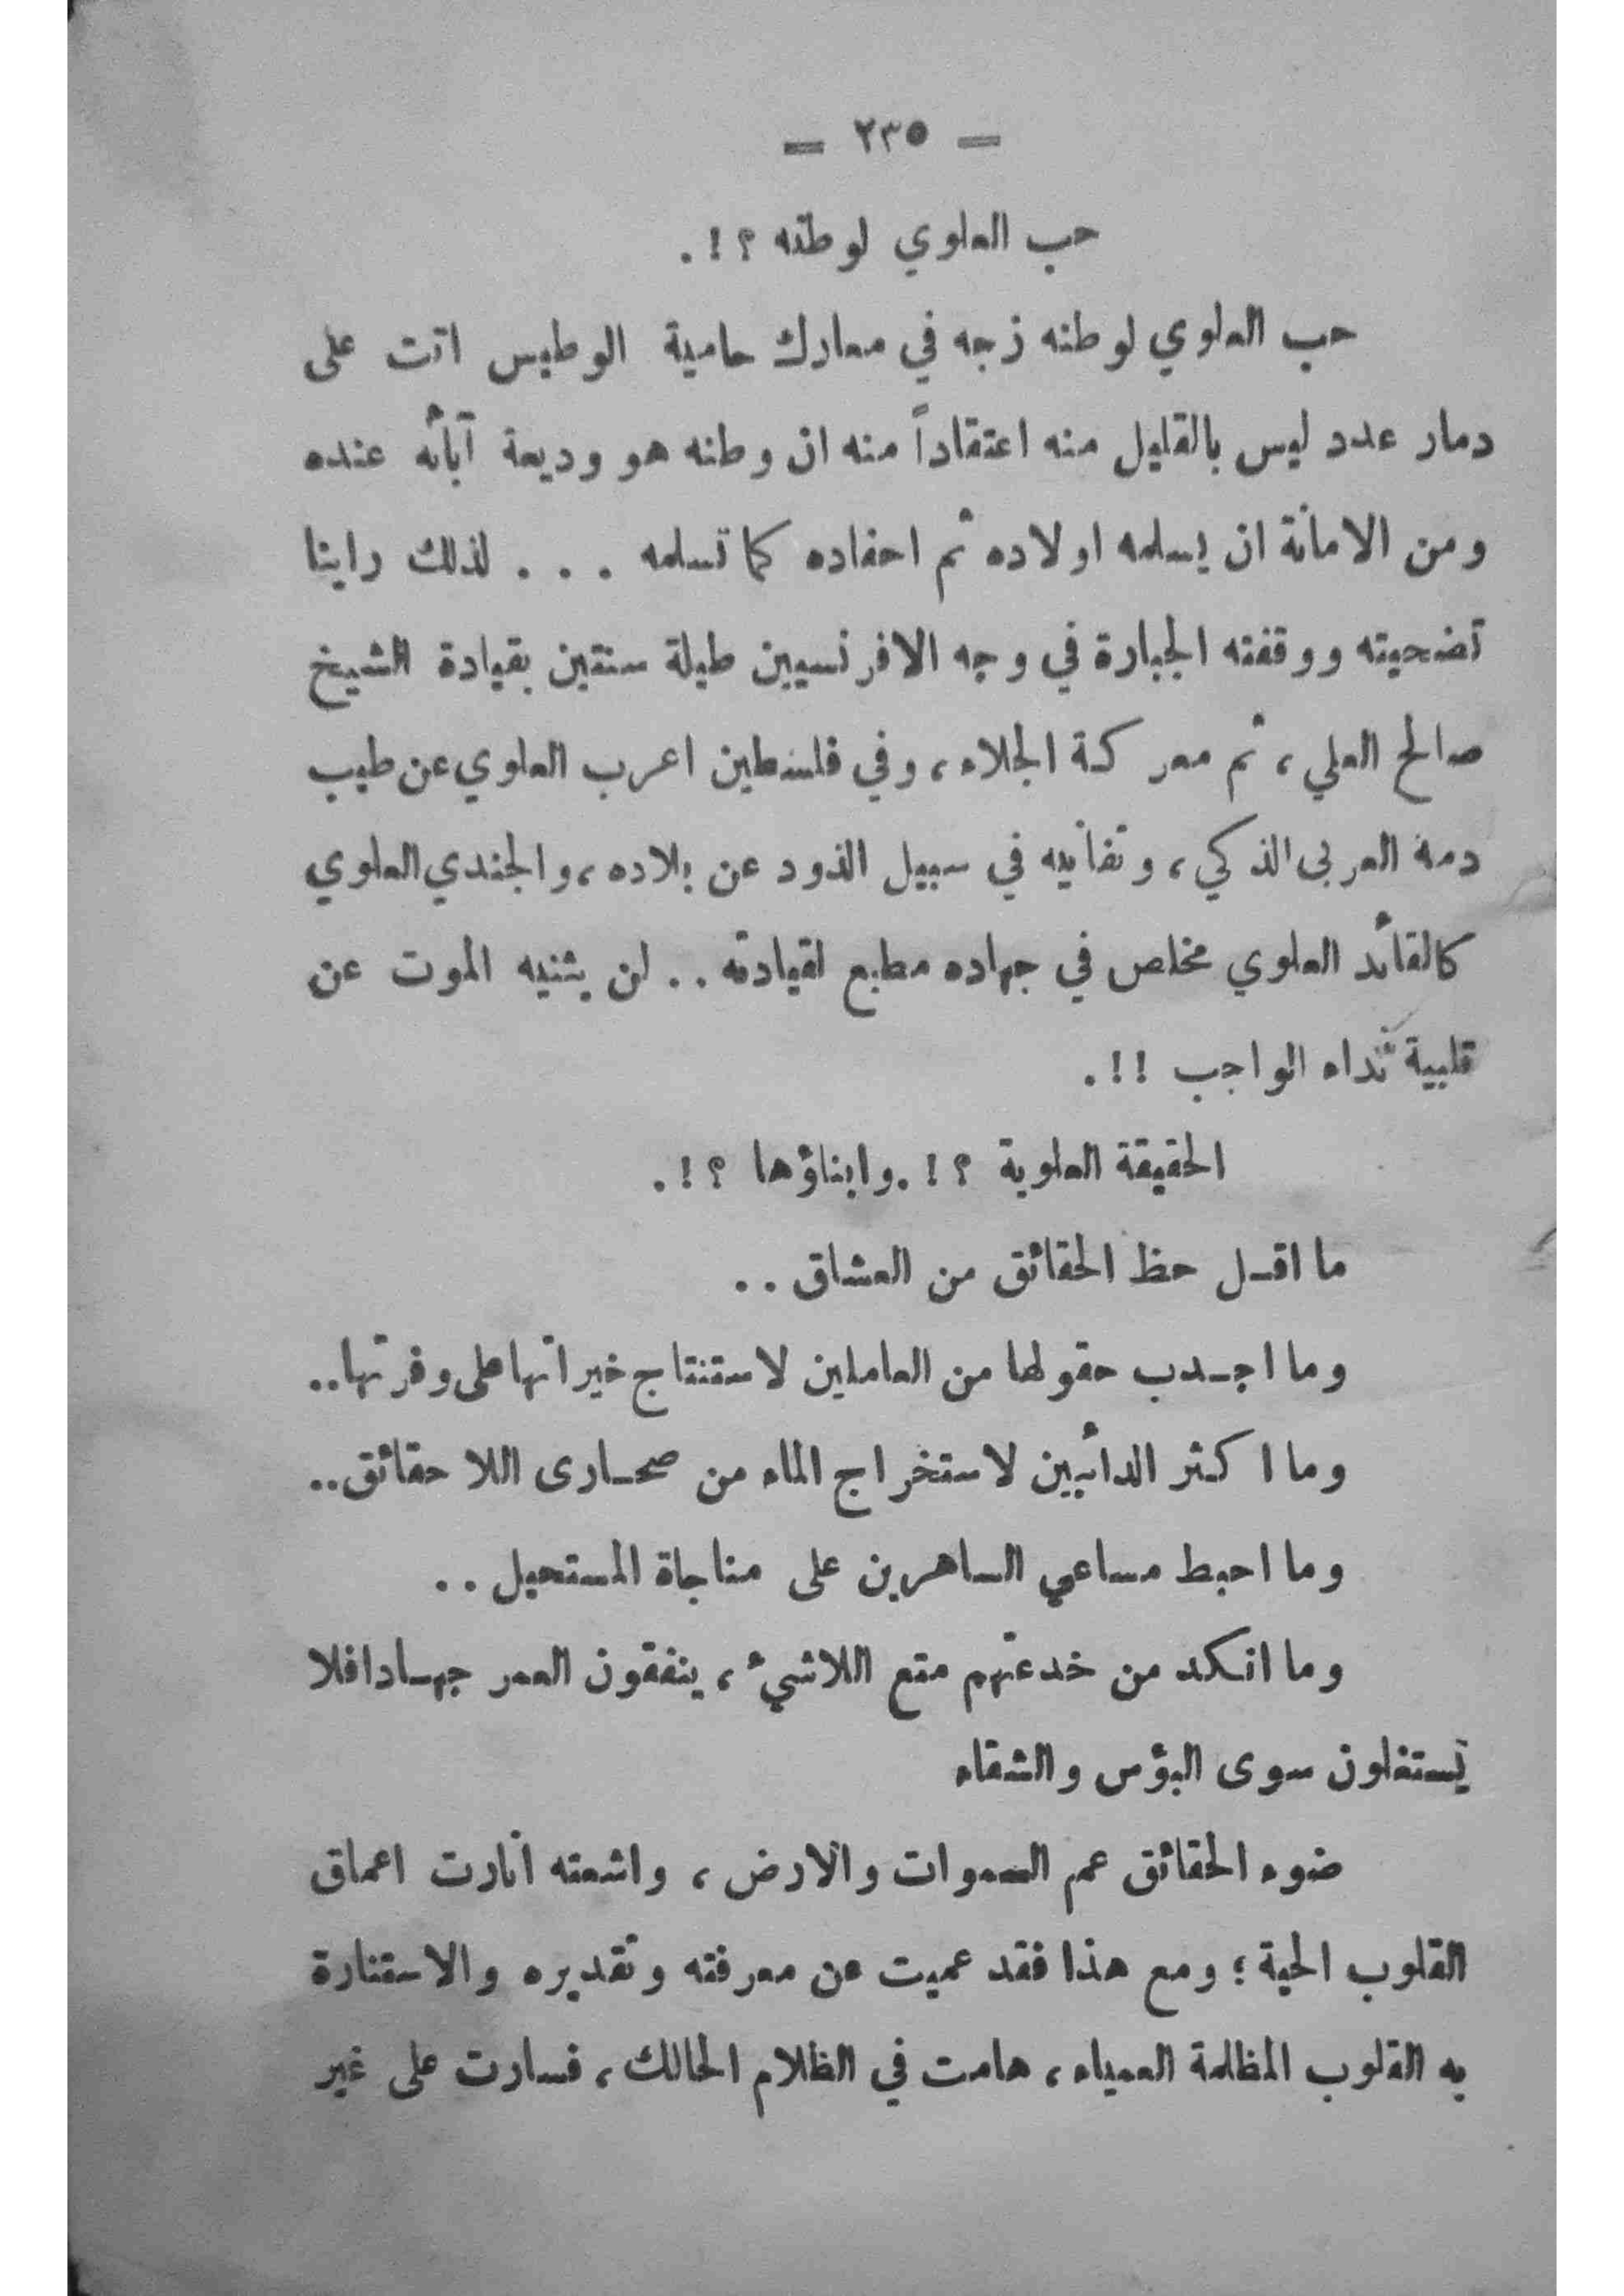 — ٢٣٥ —
حب العلوي لوطنه ؟ ! .
حب العلوي لوطنه زجه في معارك حامية الوطيس اتت على
دمار عدد ليس بالقليل منه اعتقاداً منه ان وطنه هو وديعة آبأئه عنده
ومن الامانة ان يسلمه اولاده ثم احفاده كما تسلمه . . . لذلك راينا
تضحيته ووقفته الجبارة في وجه الافرنسيين طيلة سنتين بقيادة الشيخ
صالح العلي ، ثم معركة الجلاء ، وفي فلسطين اعرب العلوي عن طيب
دمه العربى الذكي ، وتفانيه في سبيل الذود عن بلاده ، والجندي العلوي
كالقأئد العلوي مخلص في جهاده مطيع لقيادته . . لن يثنيه الموت عن
تلبية نداه الواجب ! ! .
الحقيقة العلوية ؟ ! . وابناؤها ؟ ! .
ما اقـل حظ الحقائق من العشاق . .
وما اجـدب حقولها من العاملين لاستنتاج خيراتها على وفرتها . .
وما اكثر الدأئبين لاستخراج الماء من صحـارى اللا حقائق . .
وما احبط مساعي الساهرين على مناجاة المستحيل . .
وما انكد من خدعتهم متع اللاشيء ، ينفقون العمر جهـادا فلا
يستغلون سوى البؤس والشقاء
ضوء الحقائق عم السموات والارض ، واشعته انارت اعماق
القلوب الحية ؛ ومع هذا فقد عميت عن معرفته وتقديره والاستنارة
به القلوب المظلمة العمياء ، هامت في الظلام الحالك ، فسارت على غير